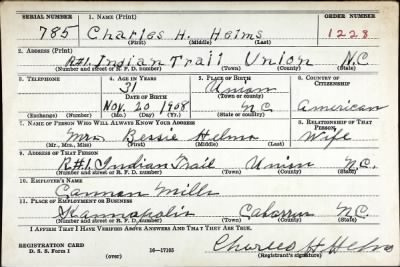 SERIAL NUMBER 1. NAME (Print) ORDER NUMBER
785 Charles H. Helms 1228
(First) (Middle) (Last)
2. ADDRESS (Print)
R#1. Indian Trail Union N.C.
(Number and street or R. F. D. number) (Town) (County) (State)
3. TELEPHONE 4. AGE IN YEARS 5. PLACE OF BIRTH 6. COUNTRY OF CITIZENSHIP
31 Union
DATE OF BIRTH (Town or county)
Nov. 20 1908 N.C. American
(Exchange) (Number) (Mo.) (Day) (Yr.) (State or country)
7. NAME OF PERSON WHO WILL ALWAYS KNOW YOUR ADDRESS 8. RELATIONSHIP OF THAT PERSON
Mrs. Bessie Helms Wife
(Mr., Mrs., Miss) (First) (Middle) (Last)
9. ADDRESS OF THAT PERSON
R#1. Indian Trail Union N.C.
(Number and street or R. F. D. number) (Town) (County) (State)
10. EMPLOYER'S NAME
Cannon Mills
11. PLACE OF EMPLOYMENT OR BUSINESS
Kannapolis Cabarrus N.C.
(Number and street or R. F. D. number) (Town) (County) (State)
I AFFIRM THAT I HAVE VERIFIED ABOVE ANSWERS AND THAT THEY ARE TRUE.
REGISTRATION CARD
D. S. S. Form 1 (over) 16-17105 Charles H Helms
(Registrant's signature)